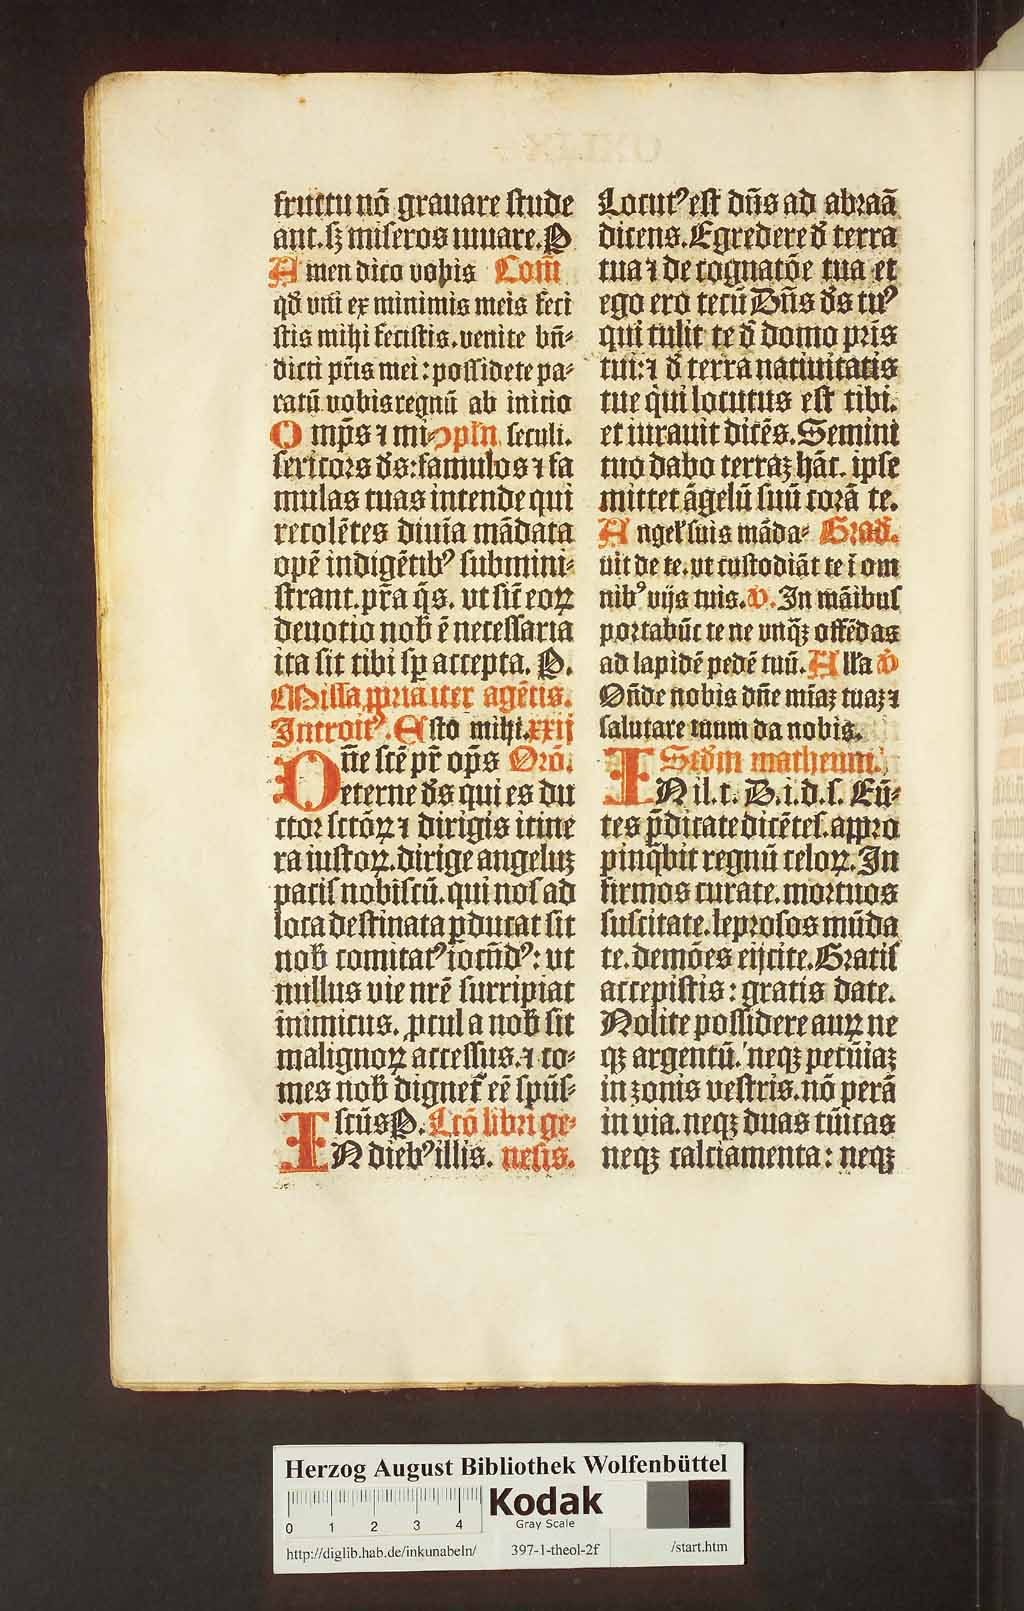 fructu nō grauare stude
ant. sꝫ miseros iuuare. P
Amen dico vobis Com̄
qd̓ vni ex minimis meis feci
stis mihi fecistis. venite bn̄-
dicti pr̄is mei: possidete pa-
ratū vobis regnū ab initio
Omp̄s ⁊ mi- ↄpl̄n seculi.
sericors ds̄: famulos ⁊ fa
mulas tuas intende qui
recolētes diuīa mādata
opē indigētibꝰ submini-
strant. pr̄a q̄s. vt sit̄ eoꝝ
deuotio nob̄ ē necessaria
ita sit tibi sp̄ accepta. P.
Missa ꝓpria iter agētis.
Introitꝰ. Esto mihi. xxij
Dn̄e scē pr̄ op̄s Orō.
eterne ds̄ qui es du
ctor sctōꝝ ⁊ dirigis itine
ra iustoꝝ. dirige angeluꝫ
pacis nobiscū. qui nos ad
loca destinata ꝑducat sit
nob̄ comitatꝰ iocūdꝰ: ut
nullus vie nrē surripiat
inimicus. ꝓcul a nob̄ sit
malignoꝝ accessus. ⁊ co-
mes nob̄ dignet̄ eē spūs-
scūs P. Lcō libri ge-
IN diebꝰ illis. nesis.
Locutꝰ est dn̄s ad abraā
dicens. Egredere d̄ terra
tua ⁊ de cognatōe tua et
ego ero tecū Dn̄s ds̄ tuꝰ
qui tulit te d̄ domo pr̄is
tui: ⁊ d̄ terra natiuitatis
tue q̇ui locutus est tibi.
et iurauit dicēs. Semini
tuo dabo terraꝫ hāc. ipse
mittet āgelū suū corā te.
Angel̓ suis māda- Grad̓.
uit de te. vt custodiāt te ī om
nibꝰ vijs tuis. v. In māibus
portabūt te ne vnqꝫ offēdas
ad lapidē pedē tuū. All̓a v
On̄de nobis dn̄e mīaꝫ tuaꝫ ⁊
salutare tuum da nobis.
Scd̓m matheum.
IN il. t. D. i. d. s. Eū-
tes p̄dicate dicētes. appro
pinq̄bit regnū celoꝝ. In
firmos curate. mortuos
suscitate. leprosos mūda
te. demōes eijcite. Gratis
accepistis: gratis date.
Nolite possidere auꝝ ne
qꝫ argentū. neqꝫ pecūiaꝫ
in zonis vestris. nō perā
in via. neqꝫ duas tūicas
neqꝫ calciamenta: neqꝫ
Herzog August Bibliothek Wolfenbüttel
0 1 2 3 4
Kodak
Gray Scale
http://diglib.hab.de/inkunabeln/ 397-1-theol-2f /start.htm